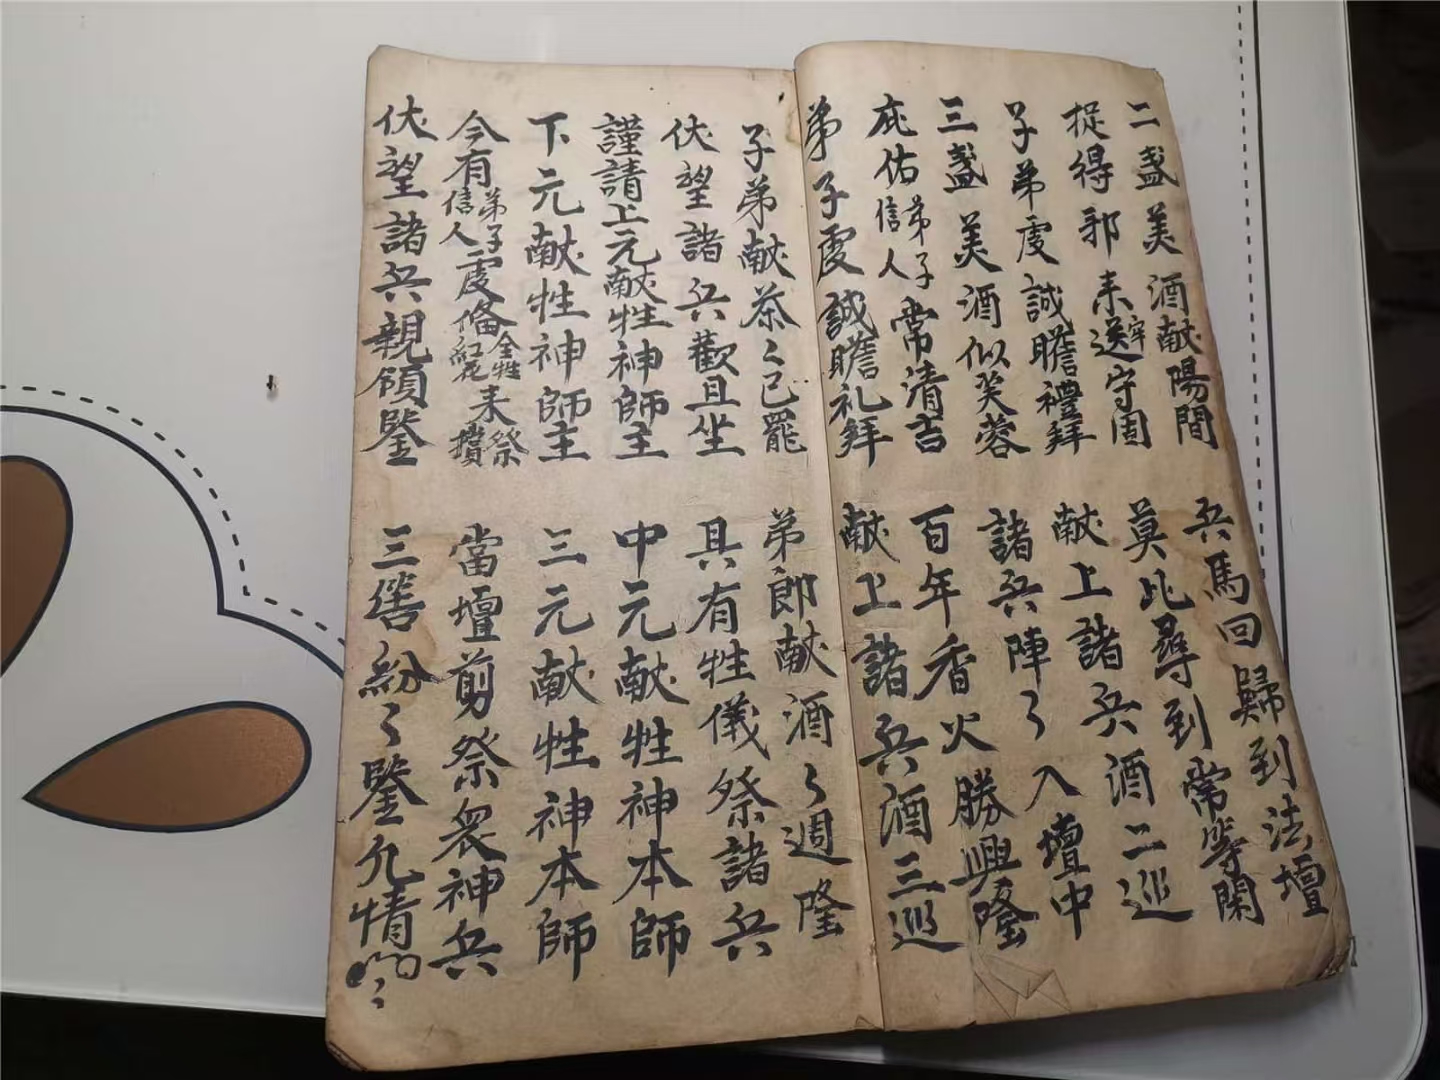 二盞美酒献陽間 兵馬回歸到法壇
捉得邪来送牢守固 莫此尋到常等閑
子弟虔誠瞻禮拜 献上諸兵酒二巡
三盞美酒似芙蓉 諸兵陣々入壇中
庇佑弟子信人常清吉 百年香火勝興隆
弟子虔誠瞻礼拜 献上諸兵酒三巡
子弟献茶々已罷 弟郎献酒々週隆
伏望諸兵歡且坐 具有牲儀祭諸兵
謹請上元献牲神師主 中元献牲神本師
下元献牲神師主 三元献牲神本師
今有弟子信人虔俻全牲紅花来祭 當壇剪祭衆神兵
伏望諸兵親領鑒 三牲紛々鑒允情